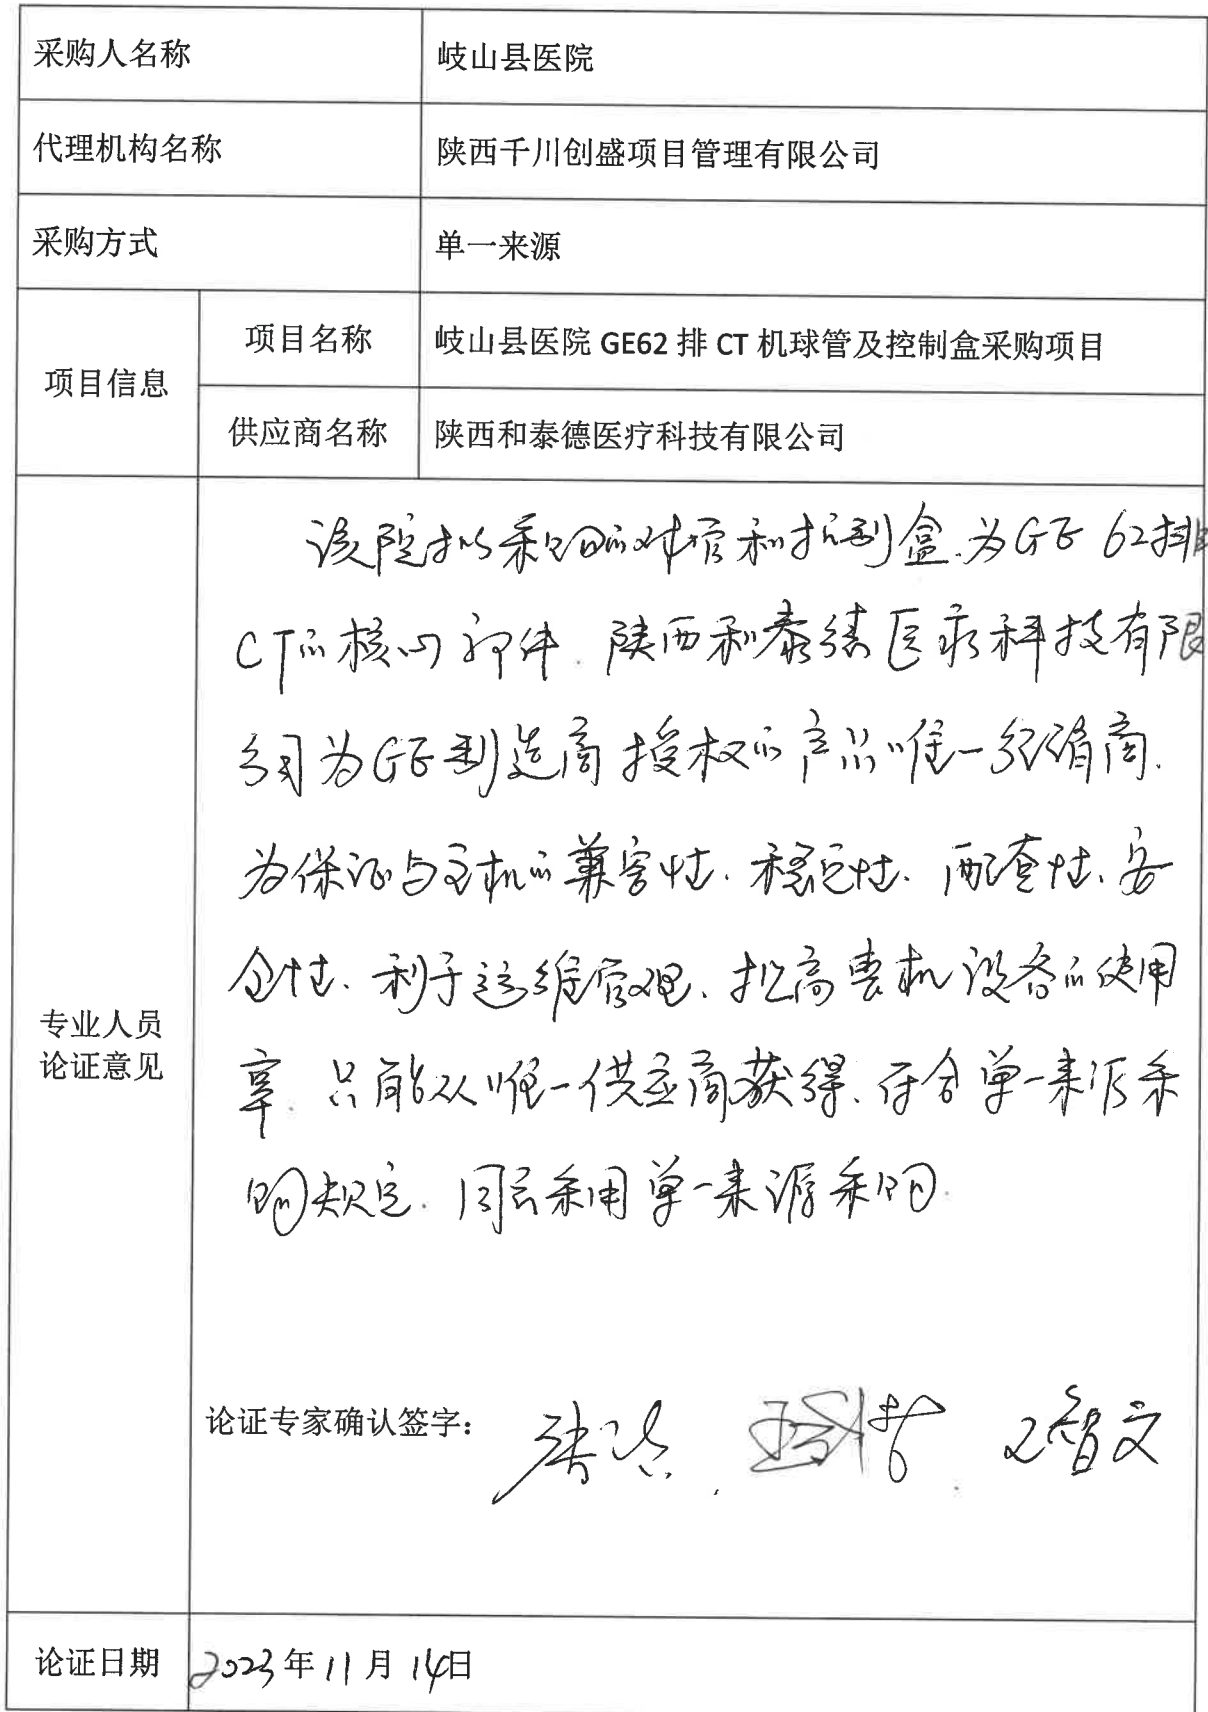 采购人名称 岐山县医院
代理机构名称 陕西千川创盛项目管理有限公司
采购方式 单一来源
项目信息
项目名称 岐山县医院 GE62 排 CT 机球管及控制盒采购项目
供应商名称 陕西和泰德医疗科技有限公司
专业人员
论证意见
该院拟采购的球管和控制盒.为GE 62排
CT的核心部件.陕西和泰德医疗科技有限
公司为GE制造商授权的产品唯一经销商.
为保证与主机的兼容性.稳定性.配套性、安
全性、利于运维管理、提高整机设备的使用
率.只能从唯一供应商获得.符合单一来源采
购规定.同意采用单一来源采购.
论证专家确认签字：
论证日期 2023年11月14日